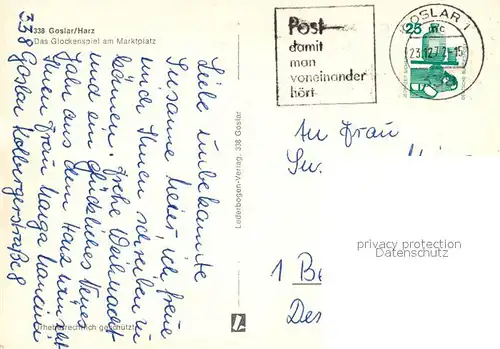 338 Goslar/Harz
Das Glockenspiel am Marktplatz
Post
damit
man
voneinander
hört
GOSLAR 1
23.12.72-15
25
Liebe unbekannte
Susanne Meier, ich freue
mich Ihnen schreiben zu
können. Frohe Weihnacht
und ein glückliches Neues
Jahr aus dem Harz wünscht
Ihnen Frau Marga
338 Goslar Kolbergerstraße 8
Lederbogen-Verlag, 338 Goslar
Urheberrechtlich geschützt
An Frau
Su
privacy protection
1 Be
Des